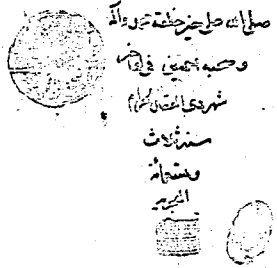 صلى الله على خير خلقه محمد وآله
وصحبه اجمعين في اواخر
شهر ذي
سنة ثلاث
وتسعمائة
الهجرية